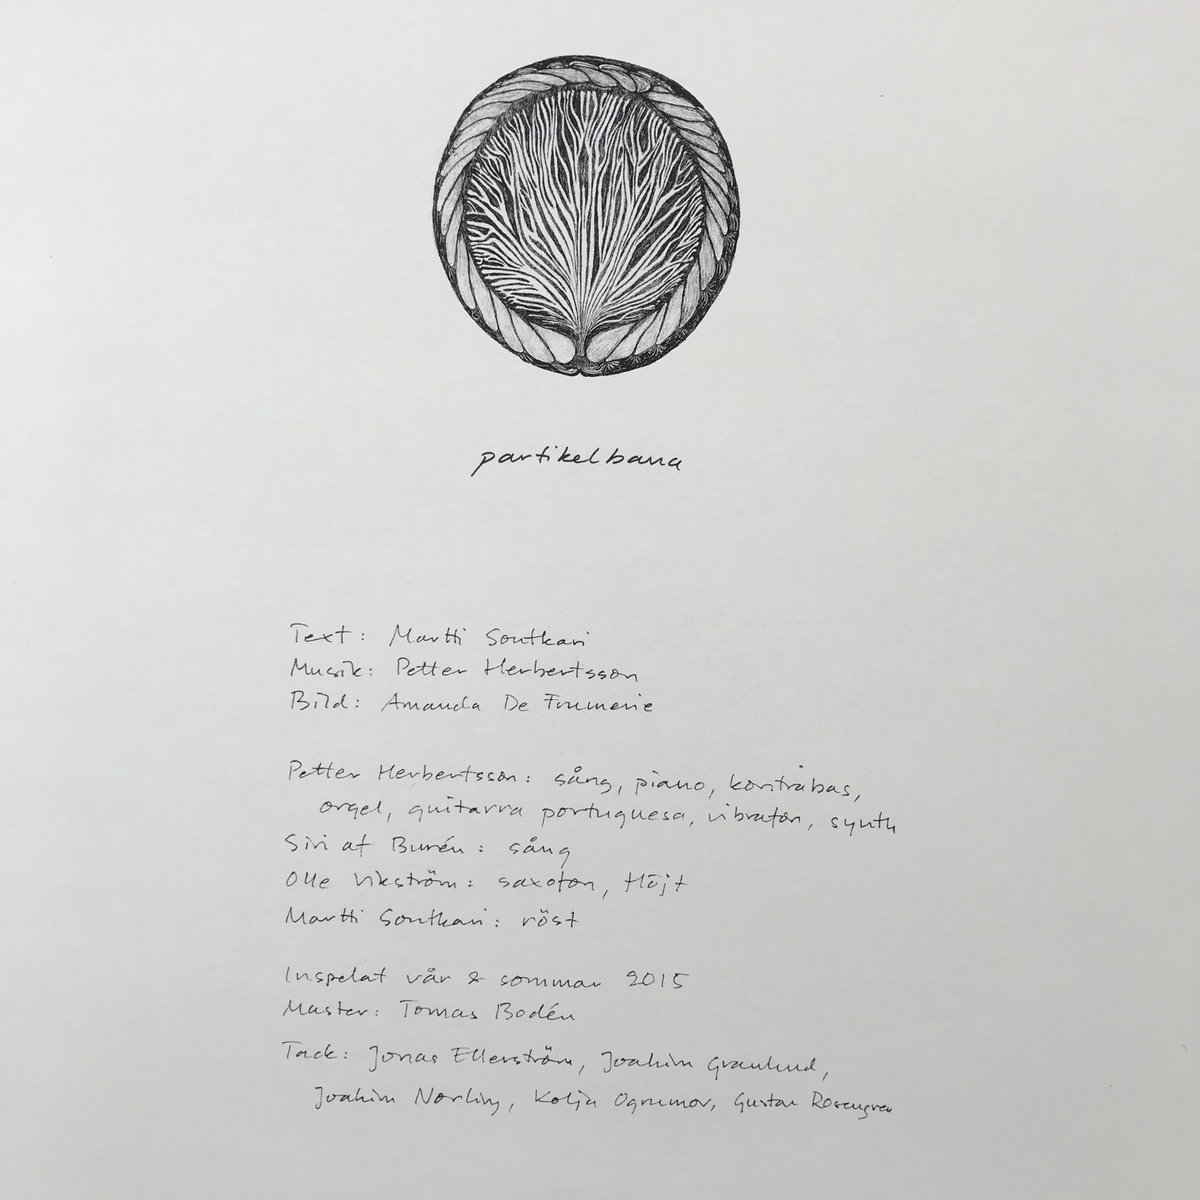 partikelbana
Text: Martti Soutkari
Musik: Petter Herbertsson
Bild: Amanda De Frumerie
Petter Herbertsson: sång, piano, kontrabas,
orgel, guitarra portuguesa, vibrafon, synth
Siri af Burén: sång
Olle Vikström: saxofon, flöjt
Martti Soutkari: röst
Inspelat vår & sommar 2015
Master: Tomas Bodén
Tack: Jonas Ellerström, Joakim Granlund,
Joakim Norling, Kolja Ogrumov, Gustav Rosengren